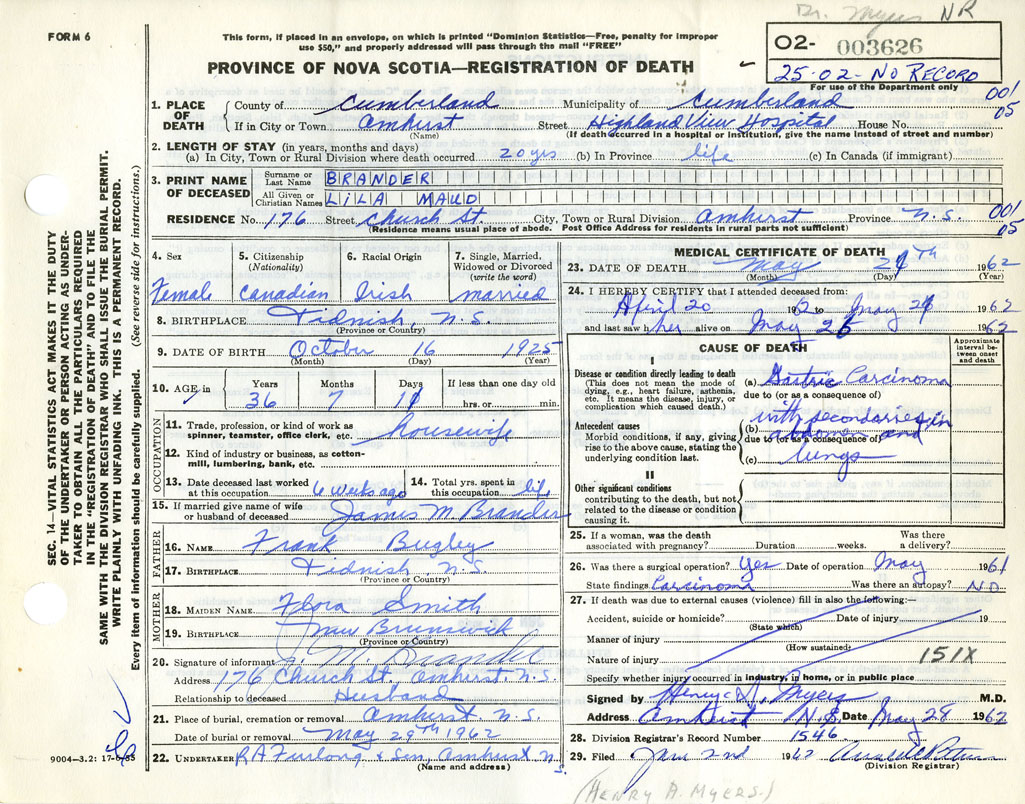 Dr. Myers NR
FORM 6
This form, if placed in an envelope, on which is printed "Dominion Statistics—Free, penalty for improper
use $50," and properly addressed will pass through the mail "FREE"
PROVINCE OF NOVA SCOTIA—REGISTRATION OF DEATH
02- 003626
25-02- NO RECORD
For use of the Department only
001
05
1. PLACE OF DEATH
County of Cumberland Municipality of Cumberland
If in City or Town Amherst Street Highland View Hospital House No.
(Name) (If death occurred in a hospital or institution, give the name instead of street and number)
2. LENGTH OF STAY (in years, months and days)
(a) In City, Town or Rural Division where death occurred 20 yrs (b) In Province life (c) In Canada (if immigrant)
3. PRINT NAME OF DECEASED
Surname or Last Name BRANDER
All Given or Christian Names LILA MAUD
RESIDENCE No. 176 Street Church St. City, Town or Rural Division Amherst Province N.S.
(Residence means usual place of abode. Post Office Address for residents in rural parts not sufficient)
001
05
4. Sex 5. Citizenship (Nationality) 6. Racial Origin 7. Single, Married, Widowed or Divorced (write the word)
Female Canadian Irish married
8. BIRTHPLACE Tidnish, N.S.
(Province or Country)
9. DATE OF BIRTH October 16 1925
(Month) (Day) (Year)
10. AGE in Years Months Days If less than one day old
36 7 11 hrs. or min.
OCCUPATION
11. Trade, profession, or kind of work as
spinner, teamster, office clerk, etc. housewife
12. Kind of industry or business, as cotton-
mill, lumbering, bank, etc.
13. Date deceased last worked at this occupation 6 weeks ago 14. Total yrs. spent in this occupation life
15. If married give name of wife
or husband of deceased James M Brander
FATHER
16. NAME Frank Bugley
17. BIRTHPLACE Tidnish, N.S.
(Province or Country)
MOTHER
18. MAIDEN NAME Flora Smith
19. BIRTHPLACE New Brunswick
(Province or Country)
20. Signature of informant J. M. Brander
Address 176 Church St., Amherst, N.S.
Relationship to deceased Husband
21. Place of burial, cremation or removal Amherst N.S.
Date of burial or removal May 29th 1962
22. UNDERTAKER R A Furlong & Son, Amherst N.S.
(Name and address)
MEDICAL CERTIFICATE OF DEATH
23. DATE OF DEATH May 27th 1962
(Month) (Day) (Year)
24. I HEREBY CERTIFY that I attended deceased from:
April 20 1962 to May 27 1962
and last saw her alive on May 26 1962
CAUSE OF DEATH
Approximate interval between onset and death
I
Disease or condition directly leading to death
(This does not mean the mode of
dying, e.g., heart failure, asthenia,
etc. It means the disease, injury, or
complication which caused death.)
(a) Gastric Carcinoma
due to (or as a consequence of)
Antecedent causes
Morbid conditions, if any, giving
rise to the above cause, stating the
underlying condition last.
(b) with secondaries in
due to (or as a consequence of) abdomen and
(c) lungs
II
Other significant conditions
contributing to the death, but not
related to the disease or condition
causing it.
25. If a woman, was the death
associated with pregnancy? Duration weeks. Was there a delivery?
26. Was there a surgical operation? Yes Date of operation May 1961
State findings Carcinoma Was there an autopsy? No
27. If death was due to external causes (violence) fill in also the following:—
Accident, suicide or homicide? Date of injury 19
(State which)
Manner of injury
(How sustained)
Nature of injury 151X
Specify whether injury occurred in industry, in home, or in public place
Signed by Henry A. Myers M.D.
Address Amherst N.S. Date May 28 1962
28. Division Registrar's Record Number 1546
29. Filed June 2nd 1962
(Division Registrar)
(HENRY A. MYERS.)
SEC. 14—VITAL STATISTICS ACT MAKES IT THE DUTY
OF THE UNDERTAKER OR PERSON ACTING AS UNDER-
TAKER TO OBTAIN ALL THE PARTICULARS REQUIRED
IN THE "REGISTRATION OF DEATH" AND TO FILE THE
SAME WITH THE DIVISION REGISTRAR WHO SHALL ISSUE THE BURIAL PERMIT.
WRITE PLAINLY WITH UNFADING INK. THIS IS A PERMANENT RECORD.
Every item of information should be carefully supplied. (See reverse side for instructions.)
9004—3.2: 17-6-55